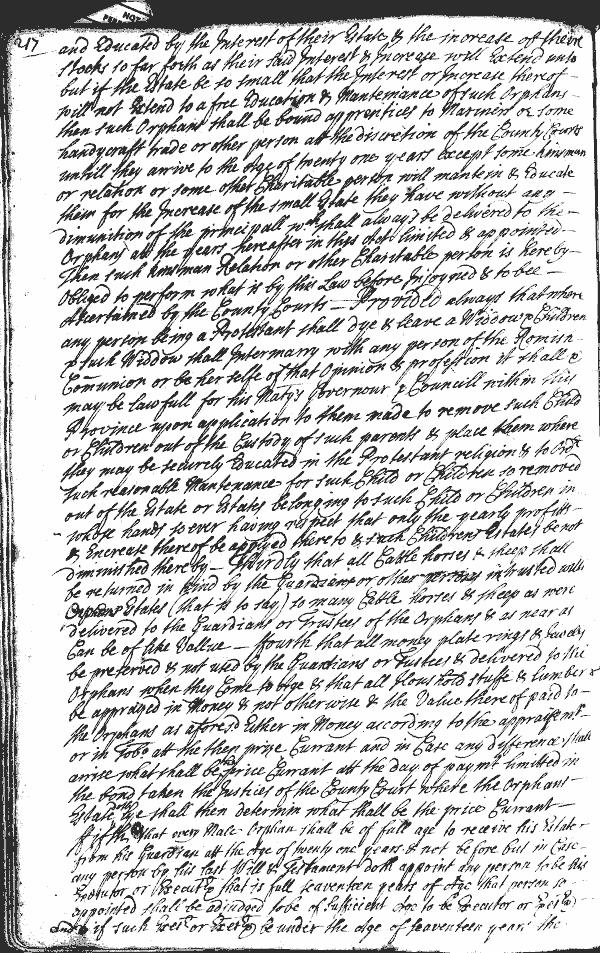 217
and Educated by the Interest of their Estate & the increase of their
Stocks so far forth as their said Interest & Increase will Extend unto
but if the Estate be so small that the Interest or Increase thereof
will not Extend to a free Education & Mantenance of such Orphans
then such Orphans shall be bound apprentices to Mariners or some
handycraft trade or other person att the discretion of the County Courts
untill they arrive to the Age of twenty one years except some kinsman
or relation or some other Charitable person will mantein & Educate
them for the Increase of the small Estate they have without any
diminution of the principall wch shall always be delivered to the
Orphans att the years hereafter in this Act limited & appointed
Then such kinsman Relation or other Charitable person is hereby
Obliged to perform what is by this Law before Injoyned & to bee
Ascertained by the County Courts Provided always that where
any person being a Protestant shall dye & leave a Widdow & Children
& such Widdow shall Intermarry with any person of the Romish
Comunion or be her selfe of that Opinion & profession it shall &
may be lawfull for his Matys Governour & Councill within this
Province upon application to them made to remove such Child
or Children out of the Custody of such parents & place them where
they may be securely Educated in the Protestant religion & to Ordr
such reasonable Mantenance for such Child or Children so removed
out of the Estate or Estates belonging to such Child or Children in
whose hands so ever having respect that only the yearly profitts
& Encrease thereof be applyed thereto & such Childrens Estates be not
diminished hereby Thirdly that all Cattle horses & sheep shall
be returned in kind by the Guardians or other persons intrusted with
Orphans Estates (that is to say) so many Cattle horses & sheep as were
delivered to the Guardians or Trustees of the Orphans & as near as
Can be of like Vallue fourth that all money plate rings & Jewells
be preserved & not used by the Guardians or Trustees & delivered to the
Orphans when they Come to Age & that all Houshold stuffe & lumber
be appraized in Money & not otherwise & the Value there of paid to
the Orphans as aforesd Either in Money according to the appraisemt
or in Tobo att the then price Currant and in Case any difference shall
arrise what shall be the price Currant att the day of paymt limitted in
the bond taken the Justices of the County Court where the Orphans
Estate doth lye shall then determin what shall be the price Currant
fifth that every Male Orphan shall be of full age to receive his Estate
from his Guardian att the Age of twenty one years & not before but in Case
any person by his last Will & Testament doth appoint any person to be his
Executor or Executx that is full seaventeen years of Age that person so
appointed shall be adjudged to be of sufficient Age to be Executor or
and if such or be under the Age of seaventeen years the